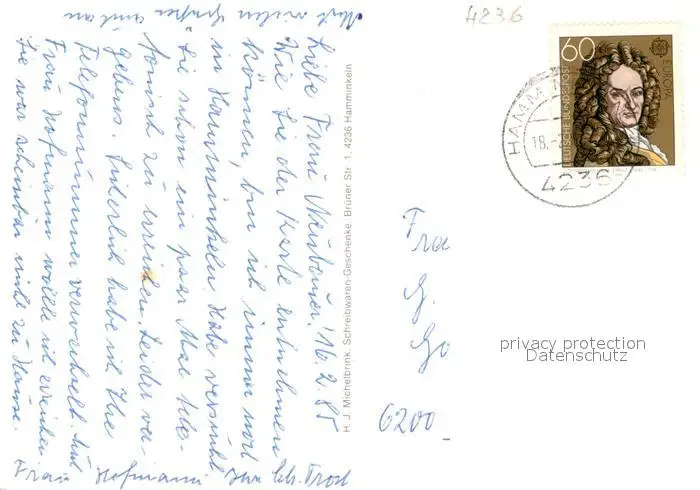 Liebe Frau Neubauer! 16.2.85
Wie Sie der Karte entnehmen
können, bin ich immer noch
in Hamminkeln. Habe versucht
Sie schon ein paar Mal tele-
fonisch zu erreichen. Leider ver-
gebens. Sicherlich habe ich Ihre
Telefonnummer verwechselt. Auch
Frau Hofmann wollte ich erreichen
Sie war scheinbar nicht zu Hause.
Mit vielen Grüßen auch an
Frau Hofmann Ihre
H. J. Michelbrink, Schreibwaren-Geschenke, Brüner Str. 1, 4236 Hamminkeln
4236
60
DEUTSCHE BUNDESPOST
EUROPA
HAMM
18.-
4236
Fra
G.
Go
6200
privacy protection
Datenschutz